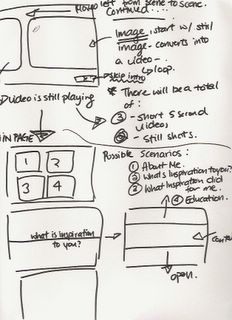 Move left from scene to scene.
Continued....
Image: start w/ still
image - converts into
a video -
↳ loop.
skip intro
video is still playing
* There will be a total
of:
③ - short 5 second
videos
- still shots.
IN PAGE
1 2
3 4
Possible Scenarios:
① About Me.
② What's Inspiration to you?
③ What Inspiration did
for me.
④ Education.
what is inspiration
to you?
open.